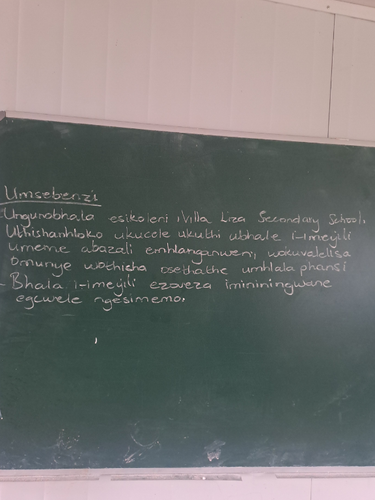 Umsebenzi
-Ungunobhala esikoleni iVilla Liza Secondary School.
Uthishanhloko ukucele ukuthi ubhale i-imeyili
umeme abazali emhlanganweni, wokuvalelisa
omunye wothisha osethathe umhlala phansi
- Bhala i-imeyili ezoveza imininingwane
egcwele ngesimemo.